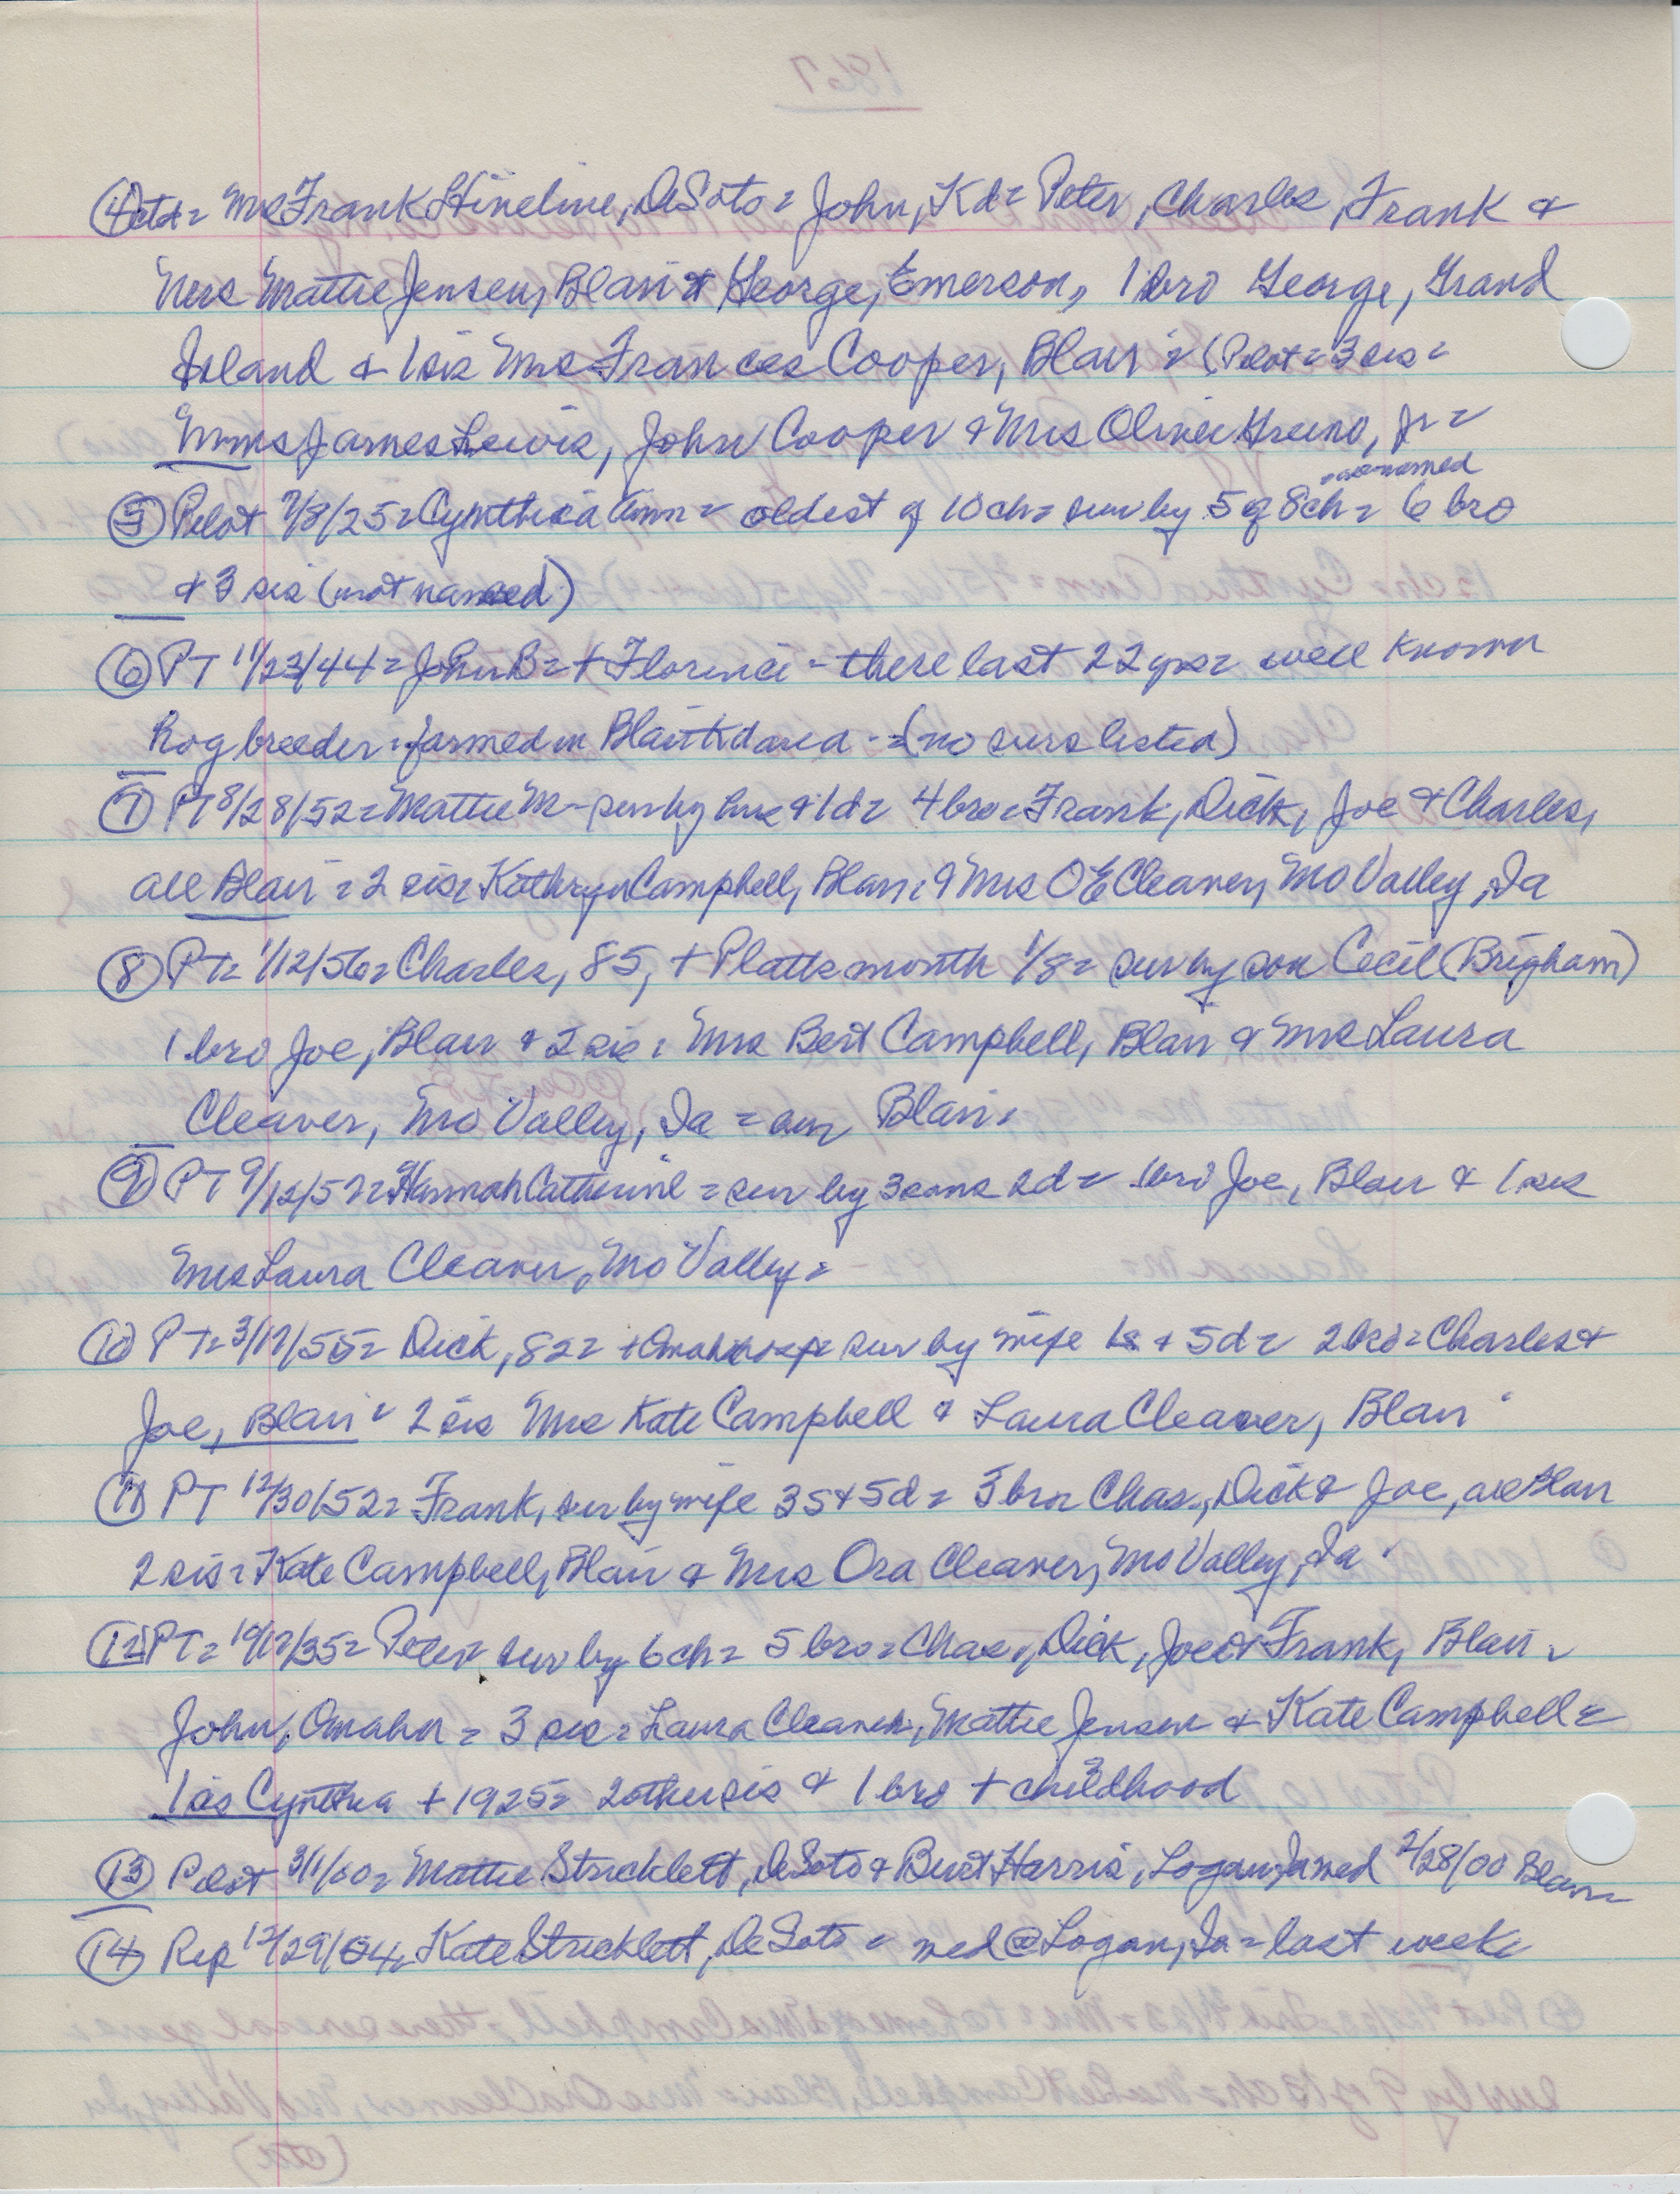 ④ctd = Mrs Frank Hineline, DeSoto = John, Kd = Peter, Charles, Frank &
Mrs Mattie Jensen, Blair & George, Emerson, 1 bro George, Grand
Island & 1 sis Mrs Frances Cooper, Blair = (Pilot = 3 sis =
Mmes James Lewis, John Cooper & Mrs Oliver, Jr =
⑤ Pilot 7/8/25 = Cynthia Ann = oldest of 10 ch = sur by 5 of 8 ch = 6 bro
& 3 sis (not named)
⑥ PT 11/23/44 = John B = + Florence - there last 22 yrs = well known
hog breeder = farmed in Blair Kd area - = (no surs listed)
⑦ PT 8/28/52 = Mattie M - sur by hus & 1d = 4 bro = Frank, Dick, Joe & Charles,
all Blair = 2 sis = Kathryn Campbell, Blair & Mrs O E Cleaver, Mo Valley, Ia
⑧ PT = 1/12/56 = Charles, 85, + Plattsmouth 1/8 = sur by son Cecil (Brigham)
1 bro Joe, Blair & 2 sis = Mrs Bert Campbell, Blair & Mrs Laura
Cleaver, Mo Valley, Ia = Blair =
⑨ PT 9/12/57 = Hannah Catherine = sur by 3 sons 2d = 1 bro Joe, Blair & 1 sis
Mrs Laura Cleaver, Mo Valley =
⑩ PT = 3/17/55 = Dick, 82 = + Omaha hosp = sur by wife 1s + 5d = 2 bro = Charles &
Joe, Blair = 2 sis Mrs Kate Campbell & Laura Cleaver, Blair
⑪ PT 12/30/52 = Frank, sur by wife 3s & 5d = 3 bro = Chas, Dick & Joe, all Blair
2 sis = Kate Campbell, Blair & Mrs Ora Cleaver, Mo Valley, Ia
⑫ PT = 10/17/35 = Peter = sur by 6 ch = 5 bro = Chas, Dick, Joe & Frank, Blair =
John, Omaha = 3 sis = Laura Cleaver, Mattie Jensen & Kate Campbell =
1 sis Cynthia + 1925 = 2 other sis & 1 bro + childhood
⑬ Pilot 3/1/00 = Mattie Stricklett, DeSoto & Burt Harris, Logan, Ia med 2/28/00 Blair =
⑭ Rep 12/29/04 = Kate Stricklett, DeSoto = med @ Logan, Ia = last week